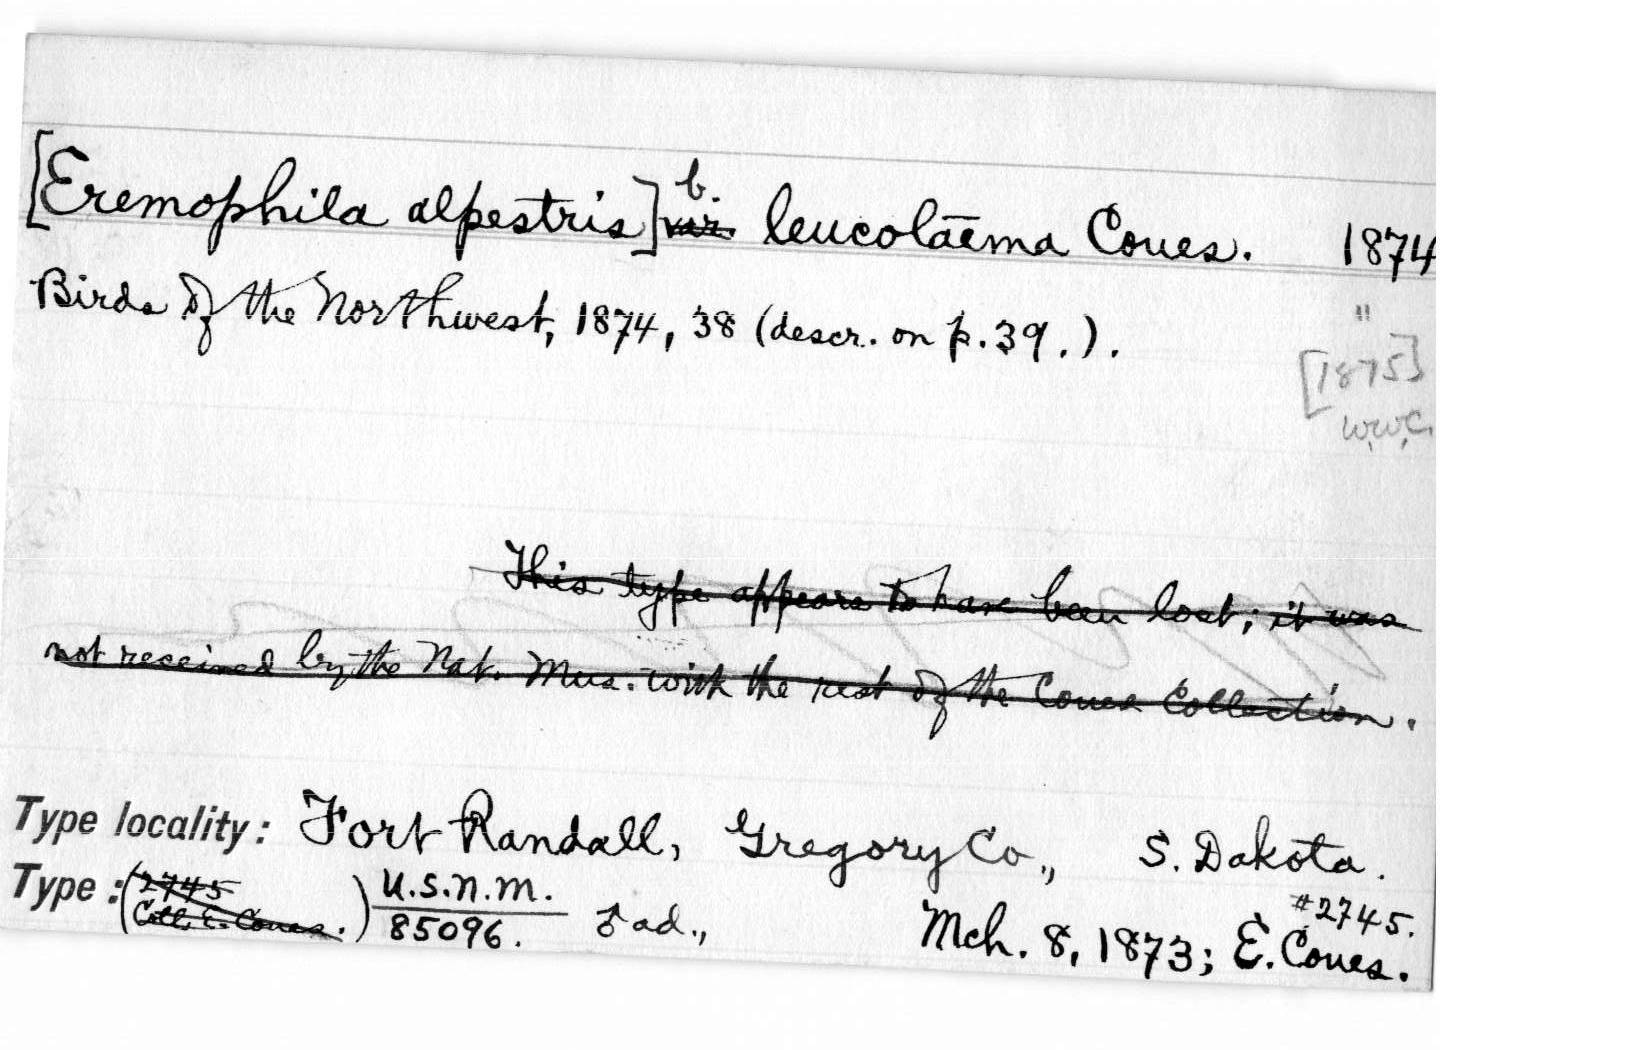 [Eremophila alpestris] var. b. leucolaēma Coues. 1874
Birds of the Northwest, 1874, 38 (descr. on p. 39.). "
[1875]
W.W.C.
This type appears to have been lost; it was
not received by the Nat. Mus. with the rest of the Coues Collection.
Type locality: Fort Randall, Gregory Co., S. Dakota.
Type: (2745 Coll. E. Coues.) U.S.N.M. 85096. ♂ ad., Mch. 8, 1873; E. Coues. #2745.